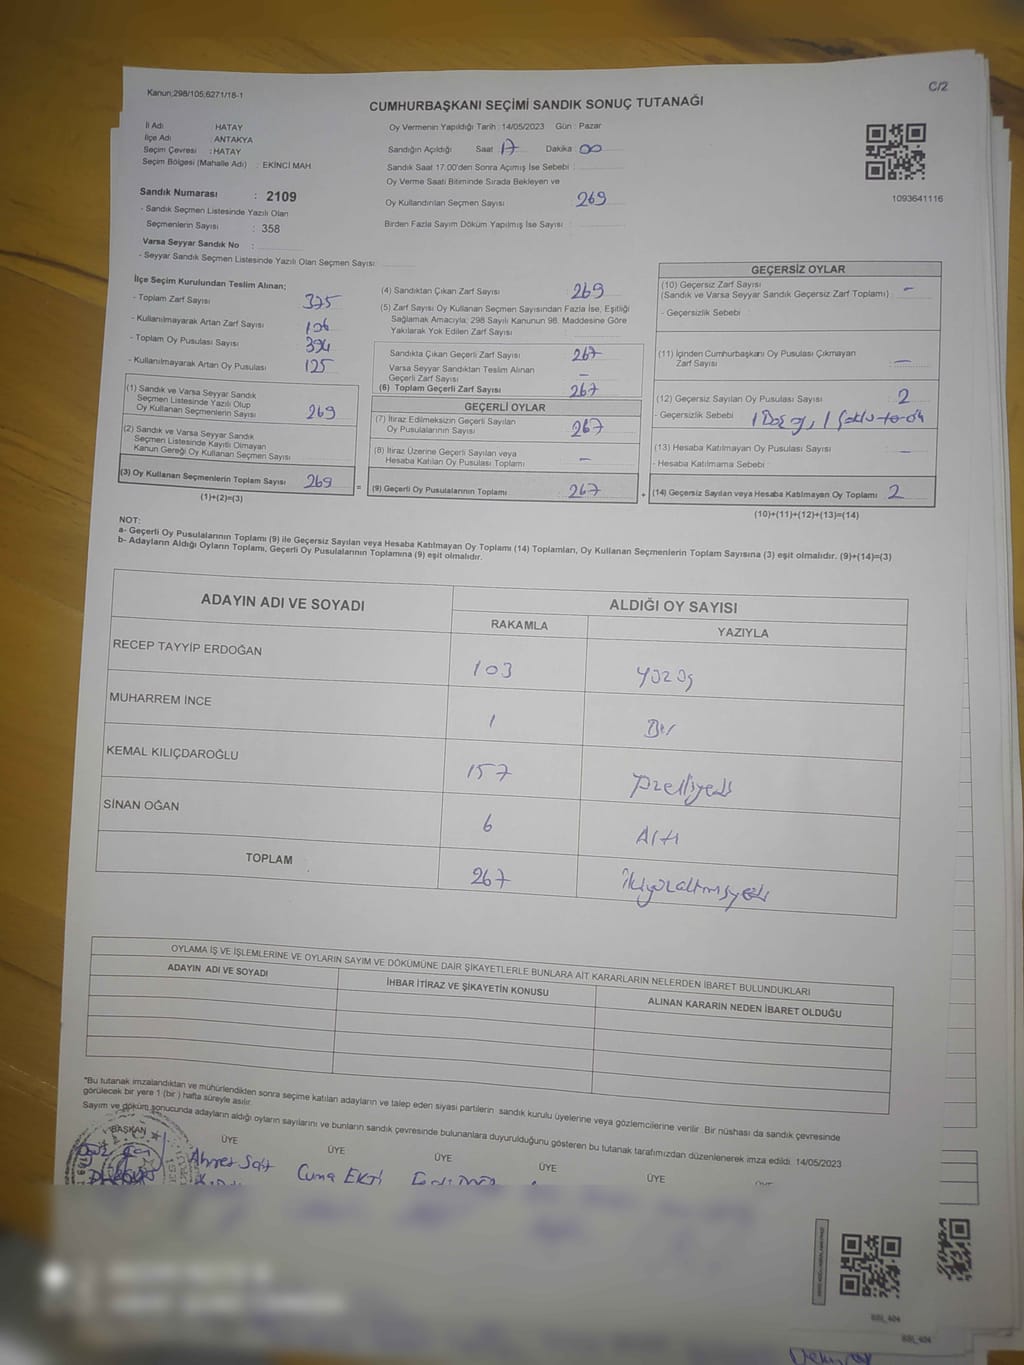 Kanun;298/105;6271/18-1
C/2
CUMHURBAŞKANI SEÇİMİ SANDIK SONUÇ TUTANAĞI
İl Adı : HATAY
İlçe Adı : ANTAKYA
Seçim Çevresi : HATAY
Seçim Bölgesi (Mahalle Adı) : EKİNCİ MAH.
Sandık Numarası : 2109
- Sandık Seçmen Listesinde Yazılı Olan
Seçmenlerin Sayısı : 358
Varsa Seyyar Sandık No :
- Seyyar Sandık Seçmen Listesinde Yazılı Olan Seçmen Sayısı:
Oy Vermenin Yapıldığı Tarih : 14/05/2023 Gün : Pazar
Sandığın Açıldığı Saat 17 Dakika 00
Sandık Saat 17:00'den Sonra Açımış İse Sebebi :
Oy Verme Saati Bitiminde Sırada Bekleyen ve
Oy Kullandırılan Seçmen Sayısı 269
Birden Fazla Sayım Döküm Yapılmış İse Sayısı :
1093641116
İlçe Seçim Kurulundan Teslim Alınan;
- Toplam Zarf Sayısı 375
- Kullanılmayarak Artan Zarf Sayısı 106
- Toplam Oy Pusulası Sayısı 394
- Kullanılmayarak Artan Oy Pusulası 125
(1) Sandık ve Varsa Seyyar Sandık
Seçmen Listesinde Yazılı Olup
Oy Kullanan Seçmenlerin Sayısı 269
(2) Sandık ve Varsa Seyyar Sandık
Seçmen Listesinde Kayıtlı Olmayan
Kanun Gereği Oy Kullanan Seçmen Sayısı
(3) Oy Kullanan Seçmenlerin Toplam Sayısı 269
(1)+(2)=(3)
(4) Sandıktan Çıkan Zarf Sayısı 269
(5) Zarf Sayısı Oy Kullanan Seçmen Sayısından Fazla İse, Eşitliği
Sağlamak Amacıyla; 298 Sayılı Kanunun 98. Maddesine Göre
Yakılarak Yok Edilen Zarf Sayısı :
Sandıkta Çıkan Geçerli Zarf Sayısı 267
Varsa Seyyar Sandıktan Teslim Alınan
Geçerli Zarf Sayısı –
(6) Toplam Geçerli Zarf Sayısı 267
GEÇERLİ OYLAR
(7) İtiraz Edilmeksizin Geçerli Sayılan
Oy Pusulalarının Sayısı 267
(8) İtiraz Üzerine Geçerli Sayılan veya
Hesaba Katılan Oy Pusulası Toplamı –
= (9) Geçerli Oy Pusulalarının Toplamı 267
GEÇERSİZ OYLAR
(10) Geçersiz Zarf Sayısı –
(Sandık ve Varsa Seyyar Sandık Geçersiz Zarf Toplamı)
- Geçersizlik Sebebi
(11) İçinden Cumhurbaşkanı Oy Pusulası Çıkmayan
Zarf Sayısı –
(12) Geçersiz Sayılan Oy Pusulası Sayısı 2
- Geçersizlik Sebebi 1 Boş oy, 1
(13) Hesaba Katılmayan Oy Pusulası Sayısı –
- Hesaba Katılmama Sebebi
+ (14) Geçersiz Sayılan veya Hesaba Katılmayan Oy Toplamı 2
(10)+(11)+(12)+(13)=(14)
NOT:
a- Geçerli Oy Pusulalarının Toplamı (9) ile Geçersiz Sayılan veya Hesaba Katılmayan Oy Toplamı (14) Toplamları, Oy Kullanan Seçmenlerin Toplam Sayısına (3) eşit olmalıdır. (9)+(14)=(3)
b- Adayların Aldığı Oyların Toplamı, Geçerli Oy Pusulalarının Toplamına (9) eşit olmalıdır.
ADAYIN ADI VE SOYADI
ALDIĞI OY SAYISI
RAKAMLA YAZIYLA
RECEP TAYYİP ERDOĞAN 103 Yüzüç
MUHARREM İNCE 1 Bir
KEMAL KILIÇDAROĞLU 157 Yüzelliyedi
SİNAN OĞAN 6 Altı
TOPLAM 267 İkiyüzaltmışyedi
OYLAMA İŞ VE İŞLEMLERİNE VE OYLARIN SAYIM VE DÖKÜMÜNE DAİR ŞİKAYETLERLE BUNLARA AİT KARARLARIN NELERDEN İBARET BULUNDUKLARI
ADAYIN ADI VE SOYADI İHBAR İTİRAZ VE ŞİKAYETİN KONUSU ALINAN KARARIN NEDEN İBARET OLDUĞU
"Bu tutanak imzalandıktan ve mühürlendikten sonra seçime katılan adayların ve talep eden siyasi partilerin sandık kurulu üyelerine veya gözlemcilerine verilir. Bir nüshası da sandık çevresinde
görülecek bir yere 1 (bir ) hafta süreyle asılır.
Sayım ve döküm sonucunda adayların aldığı oyların sayılarını ve bunların sandık çevresinde bulunanlara duyurulduğunu gösteren bu tutanak tarafımızdan düzenlenerek imza edildi. 14/05/2023
BAŞKAN ÜYE ÜYE ÜYE ÜYE ÜYE
Ahmet Sait Cuma EKTİ